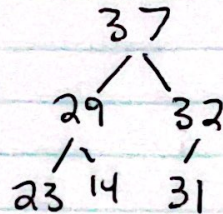 37
29 32
23 14 31